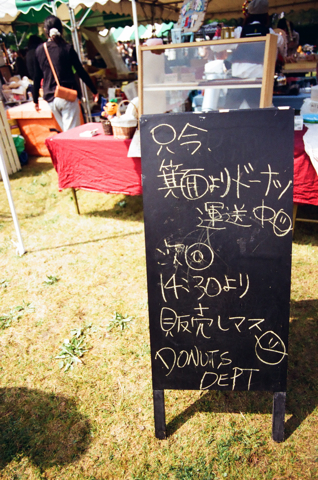 只今、
箕面よりドーナツ
運送中
次回
14:30より
販売しマス
DONUTS
DEPT